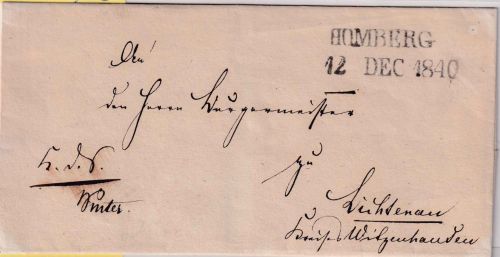 HOMBERG
12 DEC 1840
An
den Herrn Burgermeister
zu
K. d. S.
Lichtenau
Kreises Witzenhausen